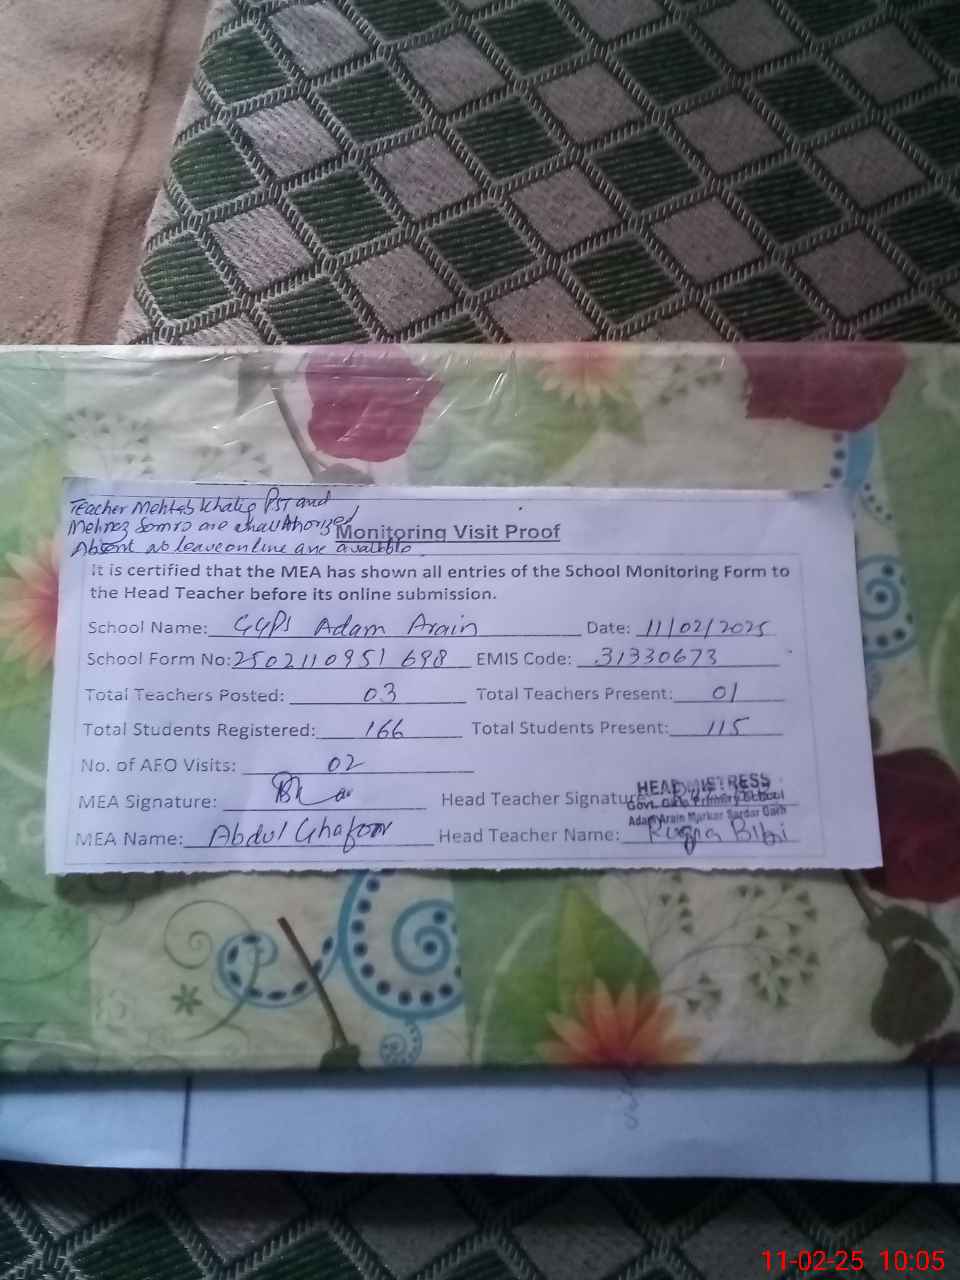 Teacher Mehtab Khaliq PST and
Mehnaz Somro are unauthorized
Absent no leave online are available
Monitoring Visit Proof
It is certified that the MEA has shown all entries of the School Monitoring Form to
the Head Teacher before its online submission.
School Name: GGPS Adam Arain Date: 11/02/2025
School Form No: 2502110951 698 EMIS Code: 31330673
Total Teachers Posted: 03 Total Teachers Present: 01
Total Students Registered: 166 Total Students Present: 115
No. of AEO Visits: 02
MEA Signature: Head Teacher Signature
HEADMISTRESS
Govt. Girls Primary School
Adam Arain Markaz Sardar Garh
MEA Name: Abdul Ghafoor Head Teacher Name: Bibi
11-02-25 10:05